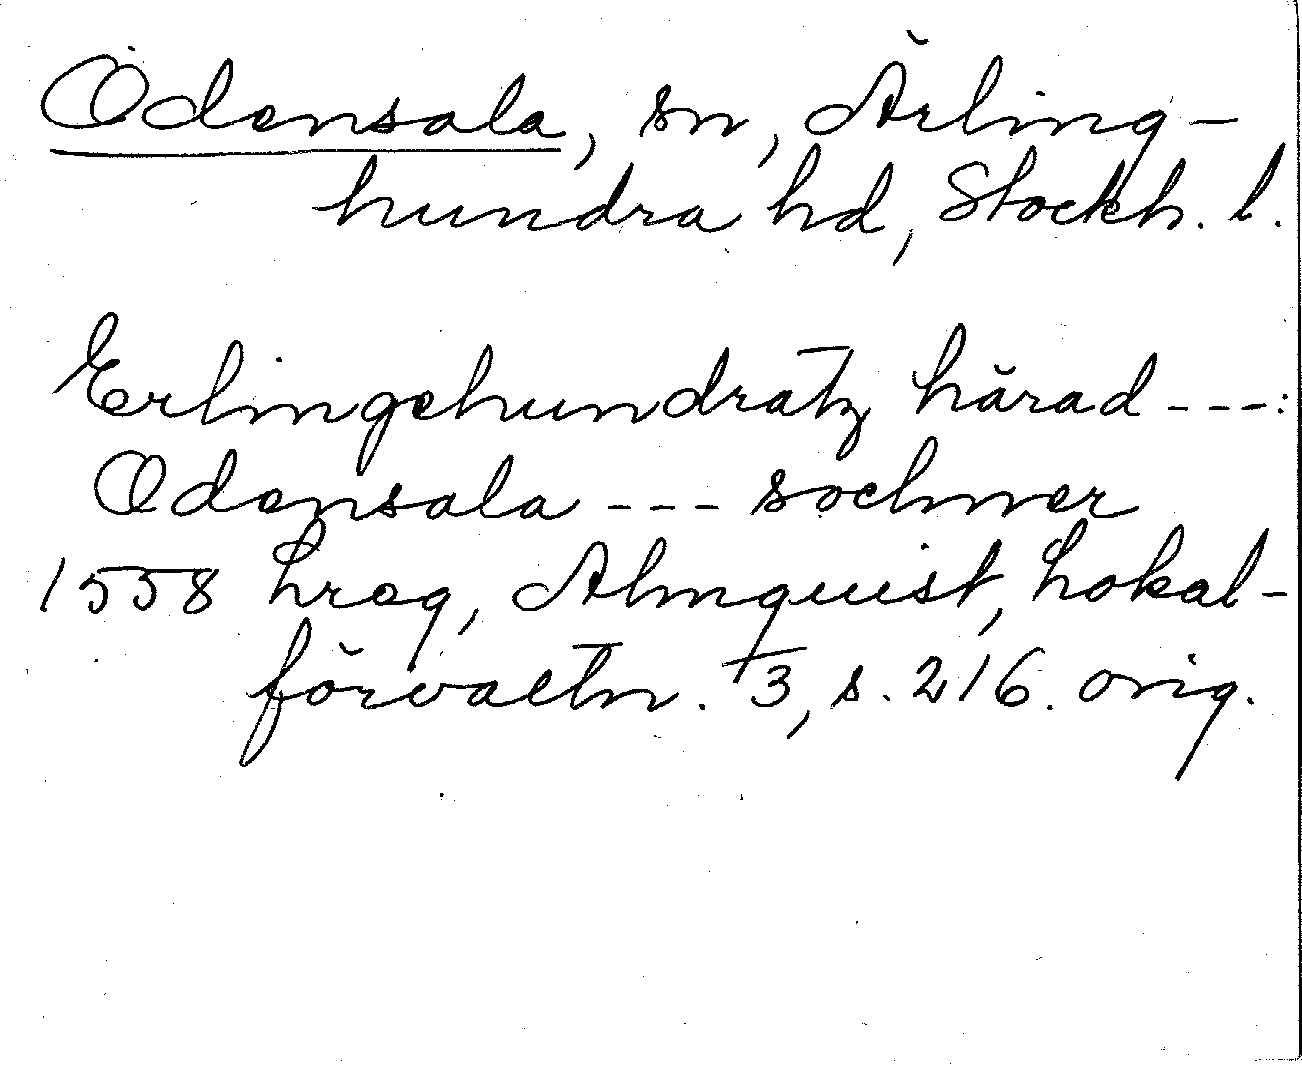 Odensala, sn, Ärling-
hundra hd, Stockh. l.
Erlingehundratz härad ---:
Odensala --- sochner
1558 hreg, Almquist, Lokal-
förvaltn. 3, s. 216. orig.